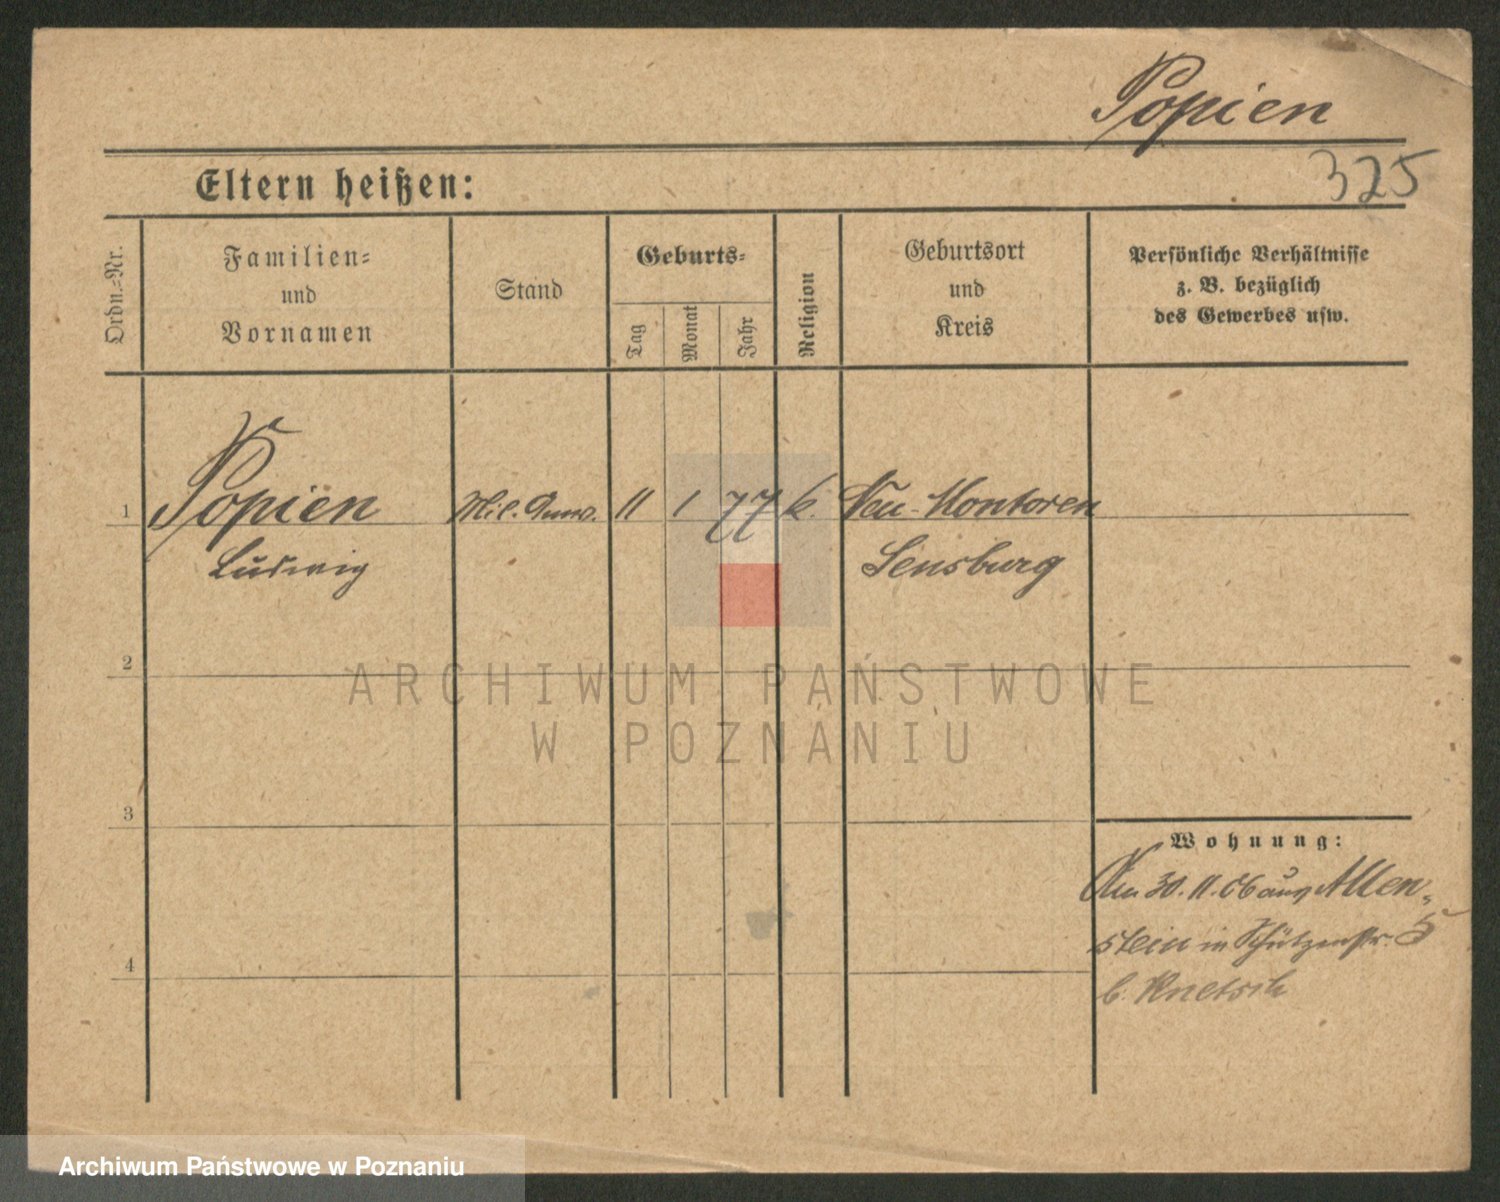 Popien
325
Eltern heißen:
Ordn.-Nr.
Familien-
und
Vornamen
Stand
Geburts-
Tag
Monat
Jahr
Religion
Geburtsort
und
Kreis
Persönliche Verhältnisse
z. B. bezüglich
des Gewerbes usw.
1
Popien
Ludwig
Mil. Anw.
11
1
77
k.
Neu-Montoren
Sensburg
2
3
4
Wohnung:
Am 30.11.06 aus Allen-
stein in Schützenstr. 5
b. Knetsch
ARCHIWUM PAŃSTWOWE
W POZNANIU
Archiwum Państwowe w Poznaniu